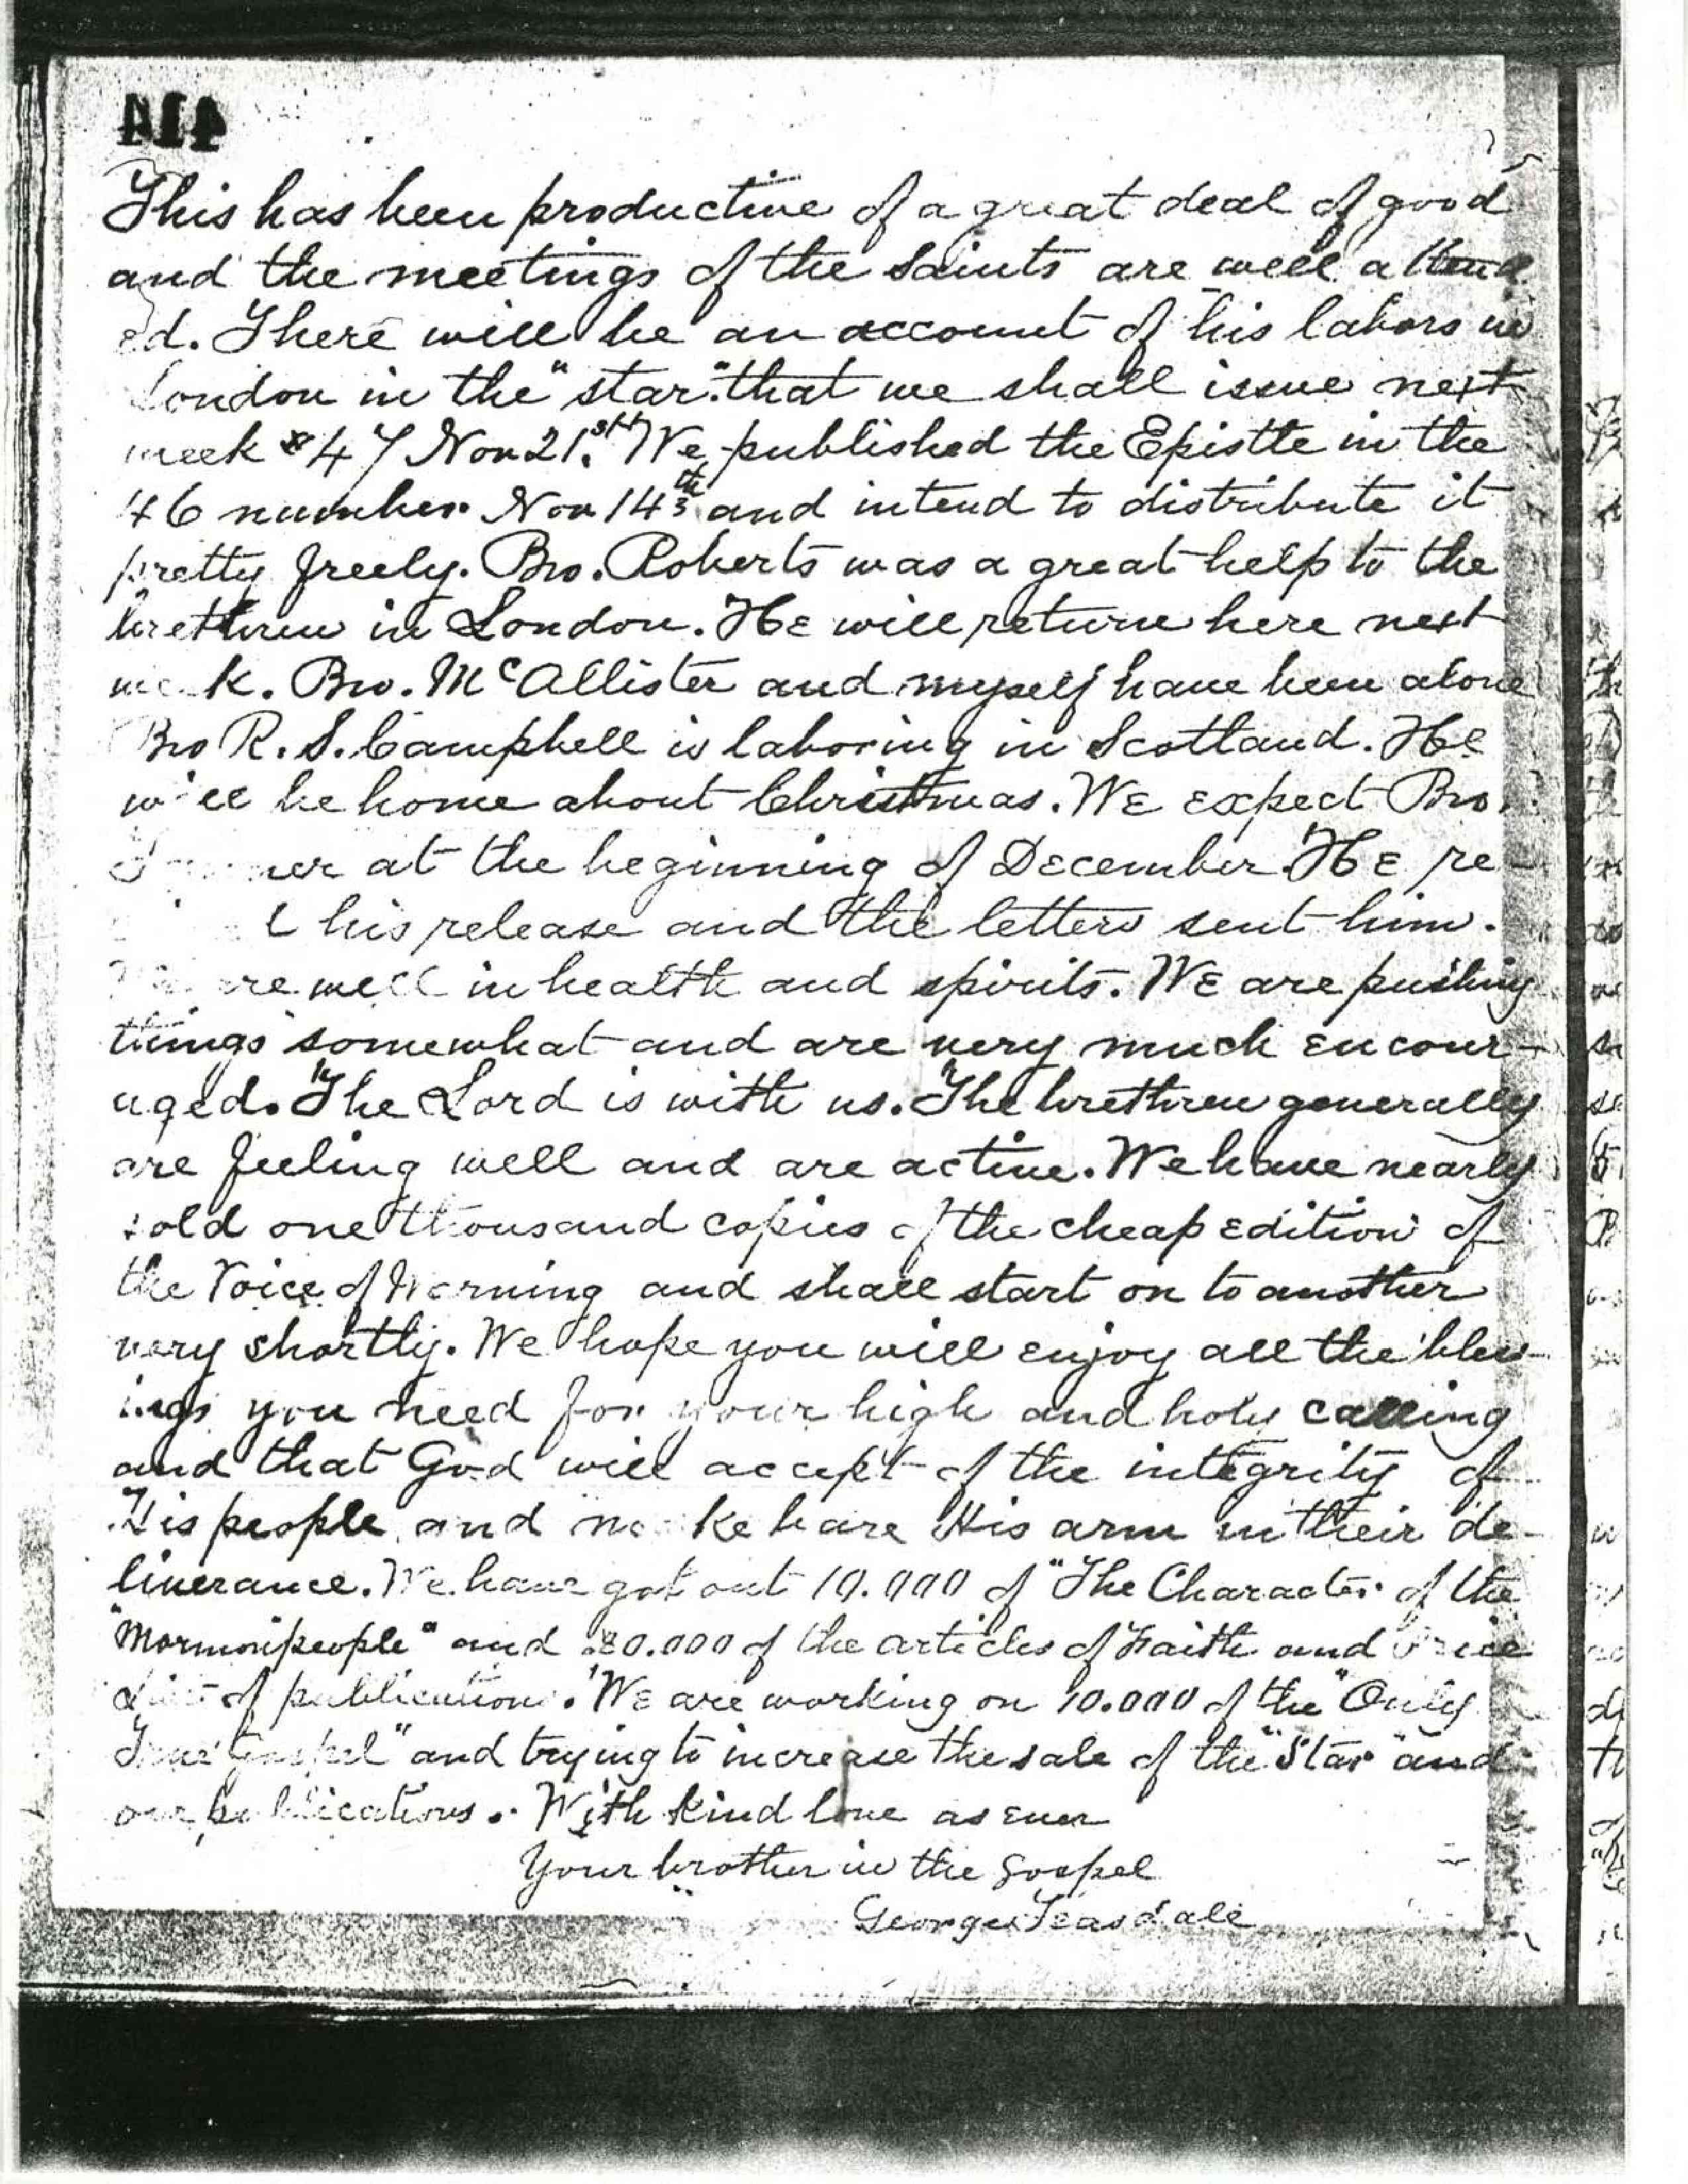 414
This has been productive of a great deal of good
and the meetings of the Saints are well attend
ed. There will be an account of his labors in
London in the "star" that we shall issue next
week # 47 Nov 21st. We published the Epistle in the
46 number Nov 14th and intend to distribute it
pretty freely. Bro. Roberts was a great help to the
brethren in London. He will return here next
week. Bro. McAllister and myself have been alone
Bro R. S. Campbell is laboring in Scotland. He
will be home about Christmas. We expect Bro.
at the beginning of December. He re-
his release and the letters sent him.
are well in health and spirits. We are pushing
things somewhat and are very much encour-
aged. "The Lord is with us." The brethren generally
are feeling well and are active. We have nearly
sold one thousand copies of the cheap edition of
the Voice of Warning and shall start on to another
very shortly. We hope you will enjoy all the bless-
ings you need for your high and holy calling
and that God will accept of the integrity of
His people and make bare His arm in their de-
liverance. We have got out 10.000 of "The Character of the
"Mormon people" and 20.000 of the articles of Faith and Price
List of publications. We are working on 10.000 of the "Only
True Gospel" and trying to increase the sale of the "Star" and
our publications. With kind love as ever
Your brother in the Gospel
George Teasdale